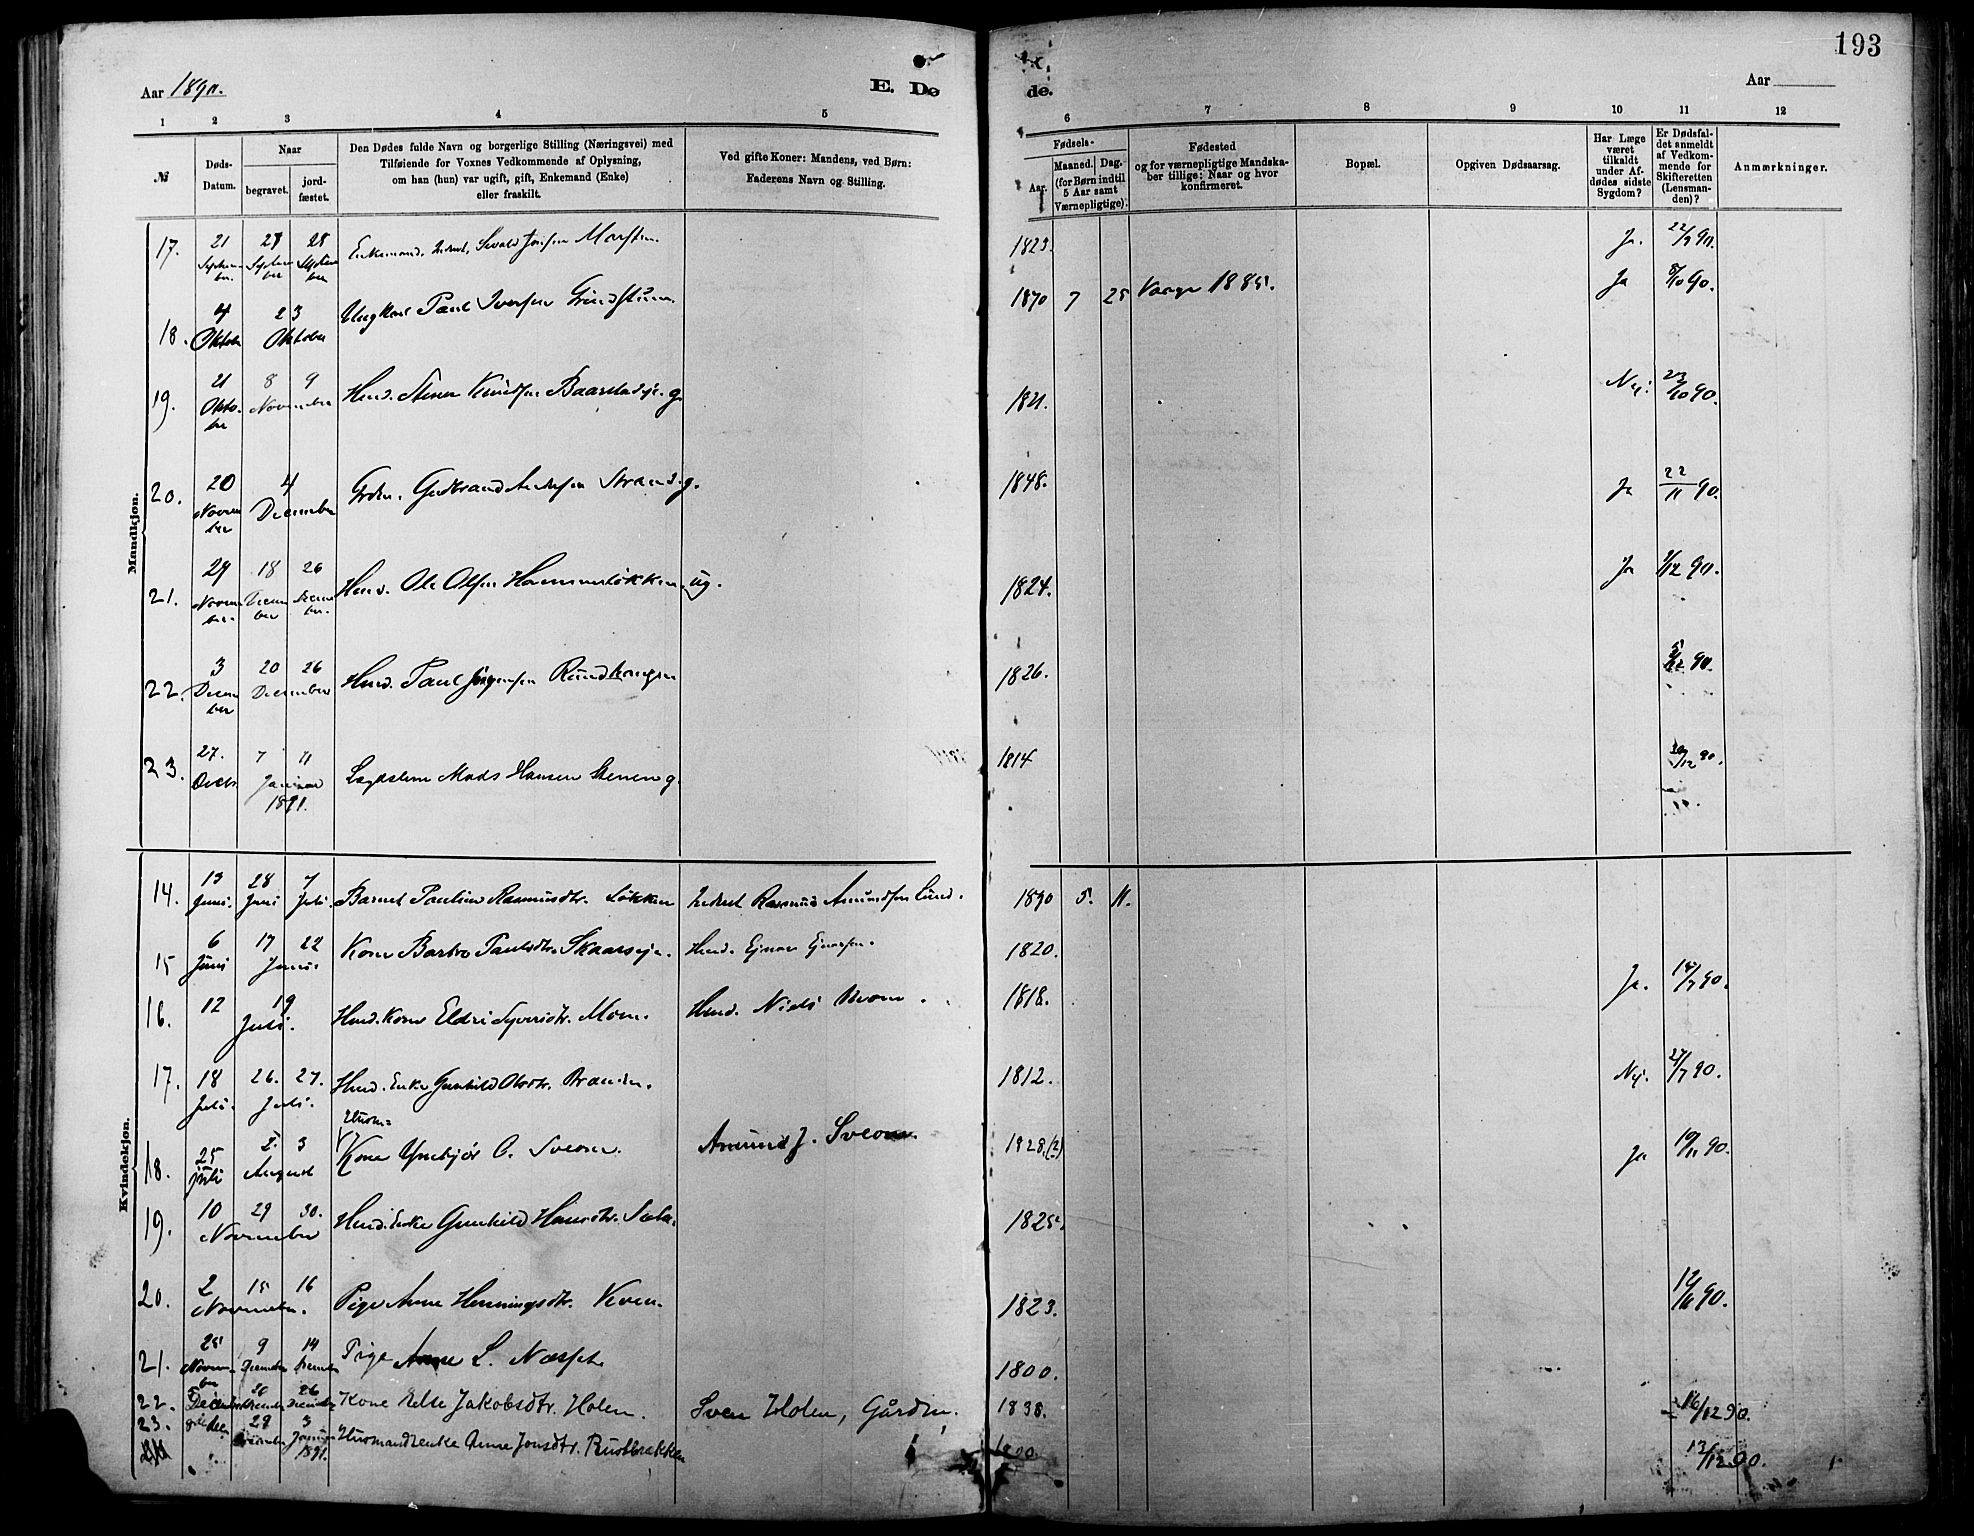 193
Aar 1890.
E. Dø
de.
Aar
1 2 3 4 5 6 7 8 9 10 11 12
№
Døds-Datum.
Naar
begravet.
jord-fæstet.
Den Dødes fulde Navn og borgerlige Stilling (Næringsvei) med
Tilføiende for Voxnes Vedkommende af Oplysning,
om han (hun) var ugift, gift, Enkemand (Enke)
eller fraskilt.
Ved gifte Koner: Mandens, ved Børn:
Faderens Navn og Stilling.
Fødsels-
Aar.
Maaned. Dag.
(for Børn indtil
5 Aar samt
Værnepligtige).
Fødested
og for værnepligtige Mandska-
ber tillige: Naar og hvor
konfirmeret.
Bopæl.
Opgiven Dødsaarsag.
Har Læge
været
tilkaldt
under Af-
dødes sidste
Sygdom?
Er Dødsfal-
det anmeldt
af Vedkom-
mende for
Skifteretten
(Lensman-
den)?
Anmærkninger.
Mandkjøn.
17. 21 September 27 September 28 September Enkemand, Sivald 1823. Ja. 22/9 90.
18. 4 Oktober 23 Oktober Ungkarl Paul Iversen Grindstuen 1870 7 25 Vaage 1885. Ja 8/10 90.
19. 21 Oktober 8 9 November Husd. Stener Knudsen Baarstadeje. g. 1821. Nej. 23/10 90.
20. 20 November 4 December Grdm. Gudbrand Strand. g. 1848. Ja 22/11 90.
21. 29 November 18 December 26 December Husd. Ole Olsen Hammerløkken. ug. 1824. Ja 1/12 90.
22. 3 December 20 26 December Husd. Paul Jørgensen Rundhaugen 1826. 5/12 90.
23. 27. Decbr. 7 11 Januar 1891. Lægdslem Mads Hansen Stenen g. 1814 30/12 90.
Kvindekjøn.
14. 13 Juni. 28 Juni 7 Juli. Barnet Pauline Rasmusdtr. Løkken Inderst Rasmus Amundsen Lund. 1890 5. 11.
15 6 Juni 17 22 Juni. Kone Barbro Paulsdtr. Skaarseje. Husd. Ejnar Ejnarsen. 1820.
16. 12 19 Juli. Husd. Kone Eldri Syversdtr. Moen. Husd. Niels Moen. 1818. Ja. 15/7 90.
17. 18 Juli. 26. 27. Juli. Husd. Enke Gunhild Olsdtr. Brænden. 1812. Nej. 27/7 90.
18. 25 Juli 2. 3 August Husm= Kone Ynebjør O. Sveom. Amund J. Sveom. 1828.(?) Ja 10/11 90.
19. 10 29 30. November Husd. Enke Gunhild Hansdtr. 1825.
20. 2 15 16 November. Pige Anne Henningsdtr. Kven. 1823. 12/11 90.
21. 25 November 9 December 14 December Pige Anne L. Næsset 1800.
22. 5 December 20 December 26 December Kone Else Jakobsdtr. Holen. Sven Holen, Gårdm. 1838. 16/12 90.
23. 29 December 3 Januar 1891. Husmandsenke Anne Jonsdtr. Rustbrækken 13/12 90.